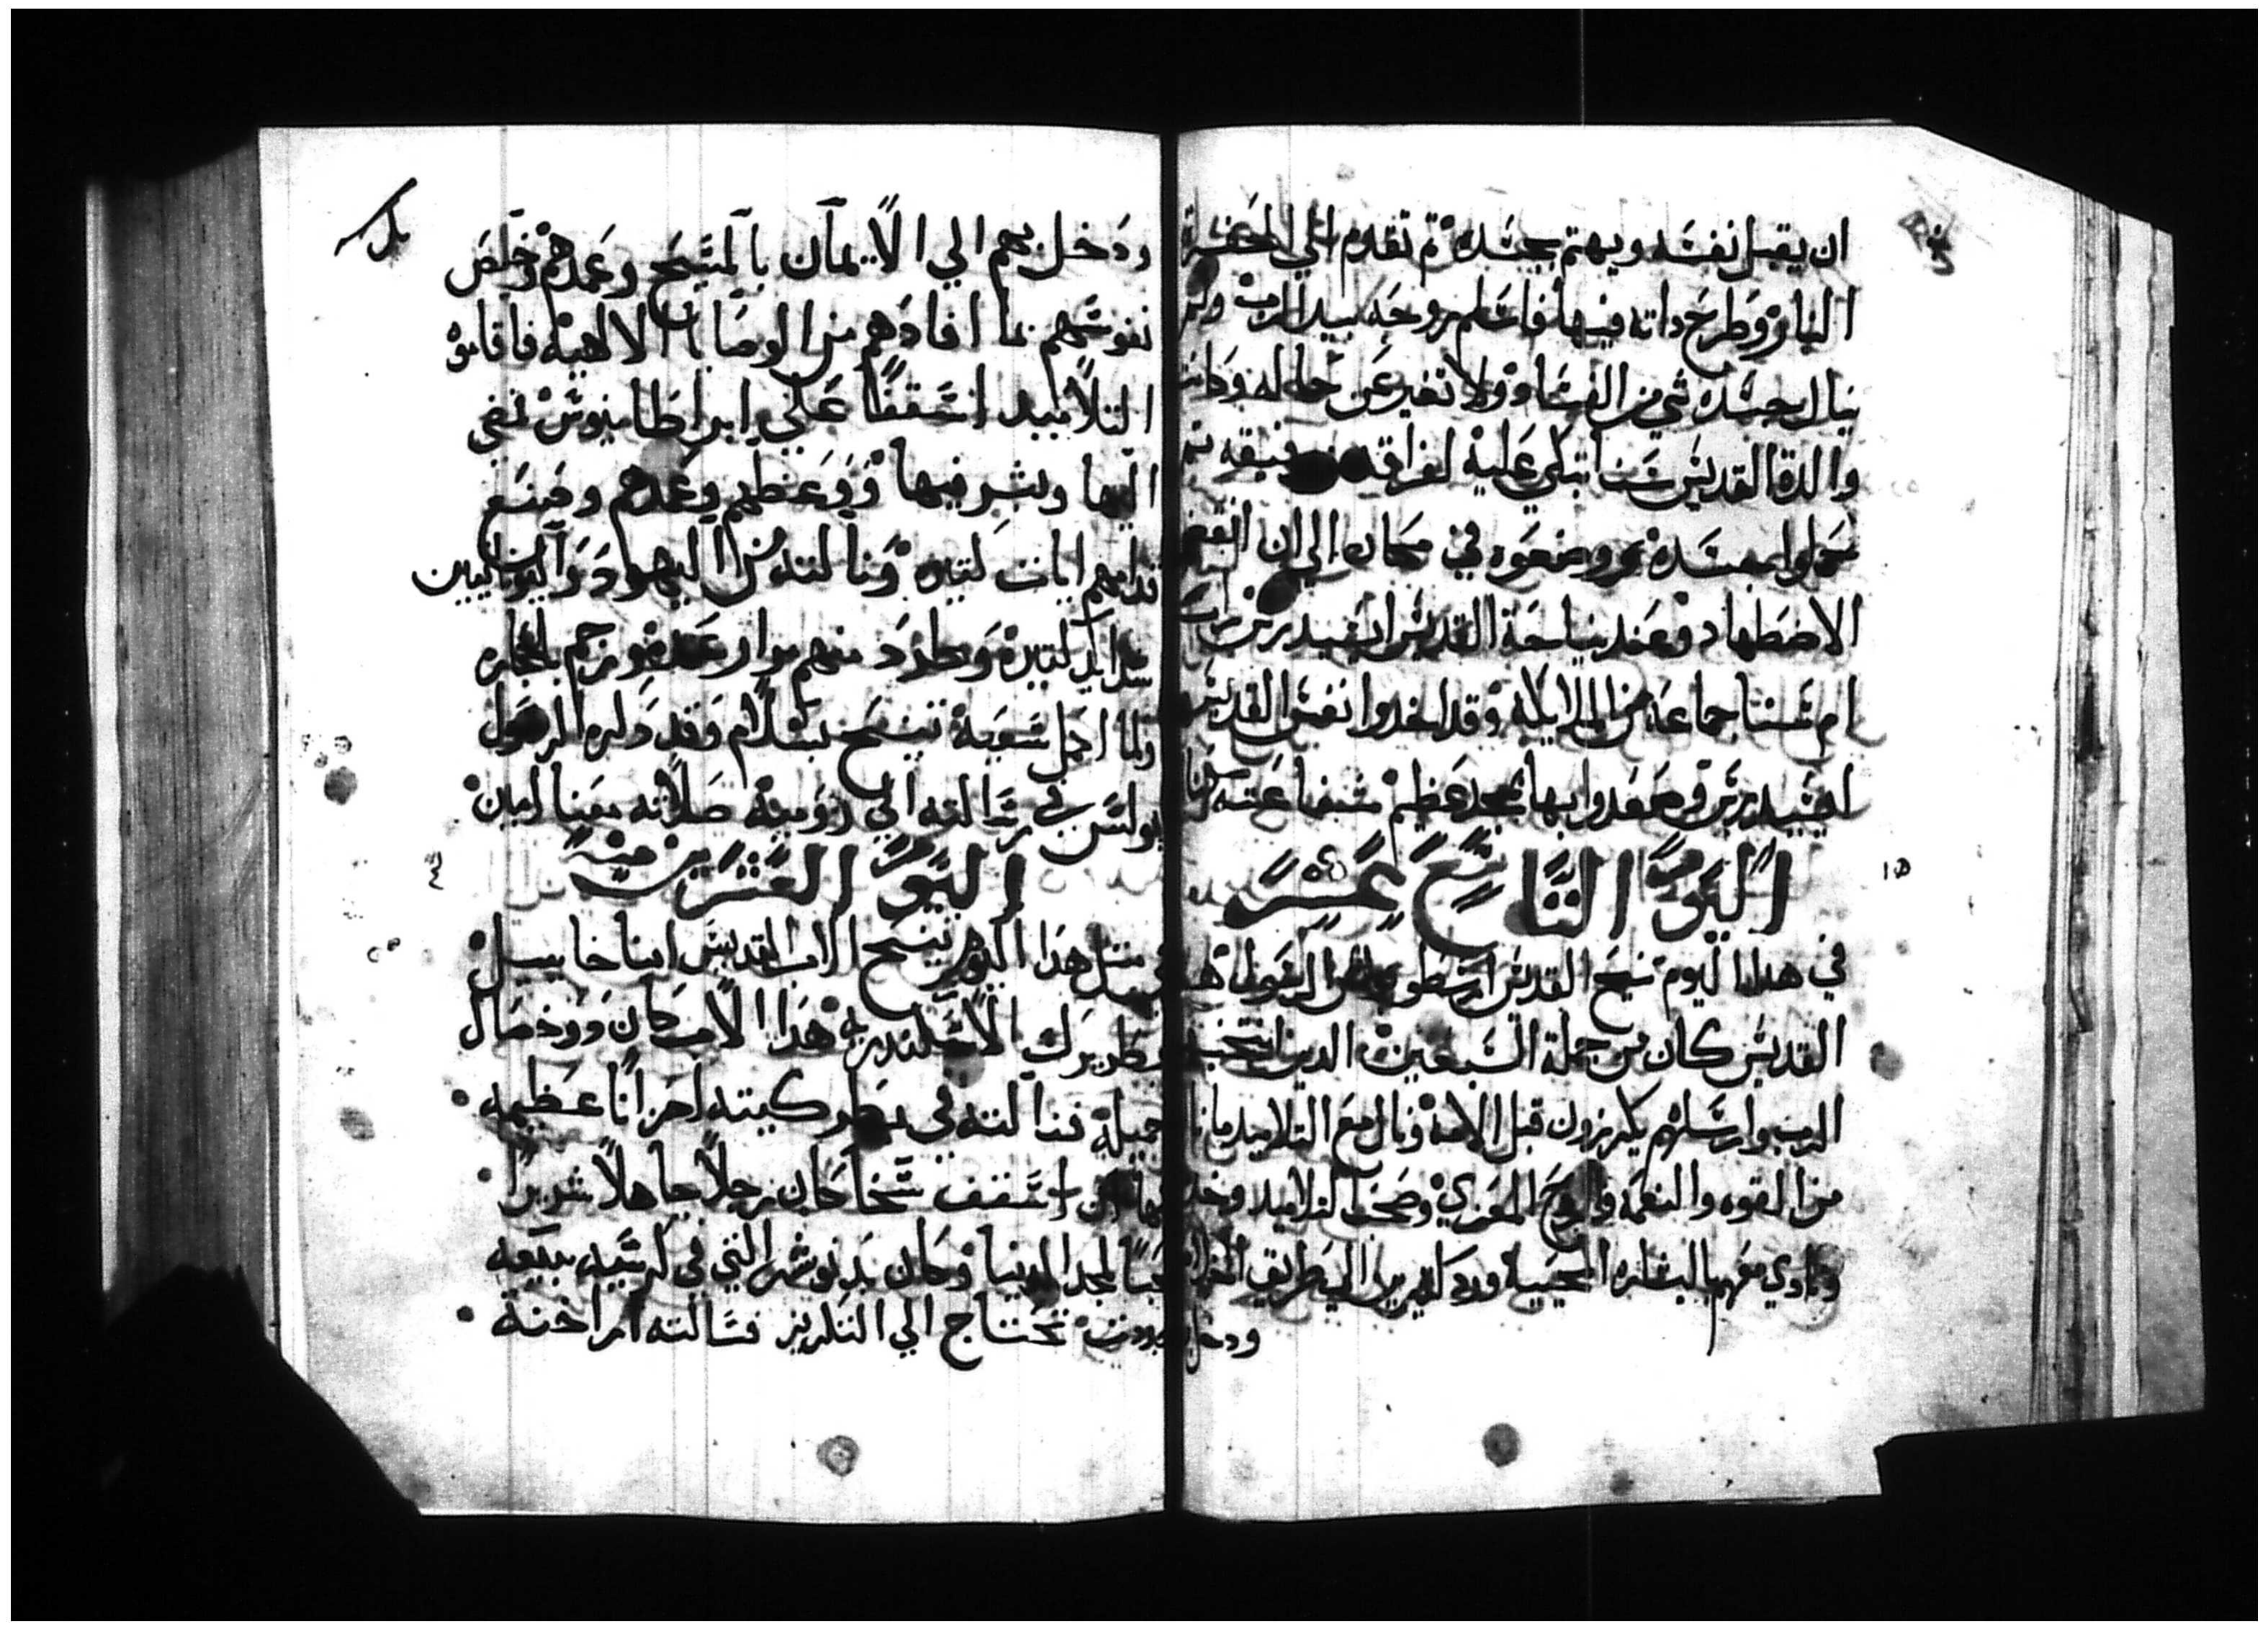 ان يقبل نفسه ويهتم بجسده ثم تقدم الي المحفرة
النار وطرح داته فيها فاسلم روحه بيد الرب ولم
ينال جسده شي من الفساد ولا تغير عن حاله وكانت
والدة القديس تبكي عليه لفراقه
جسده ووضعوه في مكان الي ان انقضي
الاضطهاد وعند نياحة القديس ايسيدرس
ام جماعة من الملايكة وقد اخدوا نفس القديس
ايسيدرس وصعدوا بها بمجد عظيم شفاعته
اليوم التاسع عشر
في هدا اليوم تنيح القديس ارسطوبولس الرسول هدا
القديس كان من جملة السبعين الدين انتخبهم
الرب وارسلهم يكرزون قبل الامه ونال مع التلاميد
من القوه والنعمه والروح المعزي وصحب التلاميد وخدم
ونادي معهم بالبشاره المحييه ورد كثيرين الي طريق الخلاص
ودخل
ودخل بهم الي الايمان بالمسيح وعمدهم وخلص
نفوسهم بما افادهم من الوصايا الالهيه فاقاموه
التلاميد اسقفا علي ابراطانيوس فمضي
اليها وبشر فيها ووعظهم وعمدهم وصنع
قدامهم ايات كتيره ونالته من اليهود واليونانيين
شدايد كتيره وطرد منهم مرار عده ورجم بالحجاره
ولما اكمل سعيه تنيح بسلام وقد دكره الرسول
بولس في رسالته الي روميه صلاته معنا امين
اليوم العشرين منه
في متل هدا اليوم تنيح الاب القديس انبا خاييل
بطريرك الاسكندريه هدا الاب كان دو خصال
جميله فنالته في بطركيته احزانا عظيمه
اسقف سخا كان رجلا جاهلا شريرا
محبا لمجد الدنيا وكان بدنوشر التي في كرسيه بيعه
جددت تحتاج الي التكريز فسالته اراخنة